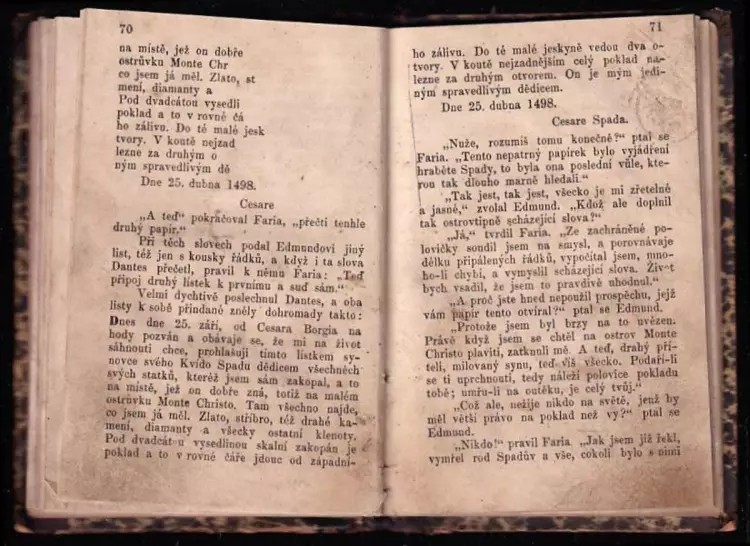 70
na místě, jež on dobře
ostrůvku Monte Chr
co jsem já měl. Zlato, st
mení, diamanty a
Pod dvadcátou vysedli
poklad a to v rovné čá
ho zálivu. Do té malé jesk
tvory. V koutě nejzad
lezne za druhým o
ným spravedlivým dě
Dne 25. dubna 1498.
Cesare
„A teď“ pokračoval Faria, „přečti tenhle
druhý papír.“
Při těch slovech podal Edmundovi jiný
list, též jen s kousky řádků, a když i ta slova
Dantes přečetl, pravil k němu Faria: „Teď
připoj druhý lístek k prvnímu a suď sám.“
Velmi dychtivě poslechnul Dantes, a oba
listy k sobě přindané zněly dohromady takto:
Dnes dne 25. září, od Cesara Borgia na
hody pozván a obávaje se, že mi na život
sáhnouti chce, prohlašuji tímto lístkem sy-
novce svého Kvído Spadu dědicem všechněch
svých statků, kteréž jsem sám zakopal, a to
na místě, jež on dobře zná, totiž na malém
ostrůvku Monte Christo. Tam všechno najde,
co jsem já měl. Zlato, stříbro, též drahé ka-
mení, diamanty a všecky ostatní klenoty.
Pod dvadcátou vysedlinou skalní zakopán je
poklad a to v rovné čáře jdouc od západní-
71
ho zálivu. Do té malé jeskyně vedou dva o-
tvory. V koutě nejzadnějším celý poklad na-
lezne za druhým otvorem. On je mým jedi-
ným spravedlivým dědicem.
Dne 25. dubna 1498.
Cesare Spada.
„Nuže, rozumíš tomu konečně?“ ptal se
Faria. „Tento nepatrný papírek bylo vyjádření
hraběte Spady, to byla ona poslední vůle, kte-
rou tak dlouho marně hledali.“
„Tak jest, tak jest, všecko je mi zřetelné
a jasné,“ zvolal Edmund. „Kdož ale doplnil
tak ostrovtipně scházející slova?“
„Já,“ tvrdil Faria. „Ze zachráněné po-
lovičky soudil jsem na smysl, a porovnávaje
délku připálených řádků, vypočítal jsem, mno-
ho-li chybí, a vymyslil scházející slova. Život
bych vsadil, že jsem to pravdivě uhodnul.“
„A proč jste hned nepoužil prospěchu, jejž
vám papír tento otvíral?“ ptal se Edmund.
„Protože jsem byl brzy na to uvězen.
Právě když jsem se chtěl na ostrov Monte
Christo plaviti, zatknuli mě. A teď, drahý pří-
teli, milovaný synu, teď víš všecko. Podaří-li
se ti uprchnouti, tedy náleží polovice pokladu
tobě; umřu-li na outěku, je celý tvůj.“
„Což ale, nežije nikdo na světě, jenž by
měl větší právo na poklad než vy?“ ptal se
Edmund.
„Nikdo!“ pravil Faria. „Jak jsem již řekl,
vymřel rod Spadův a vše, cokoli bylo s nimi